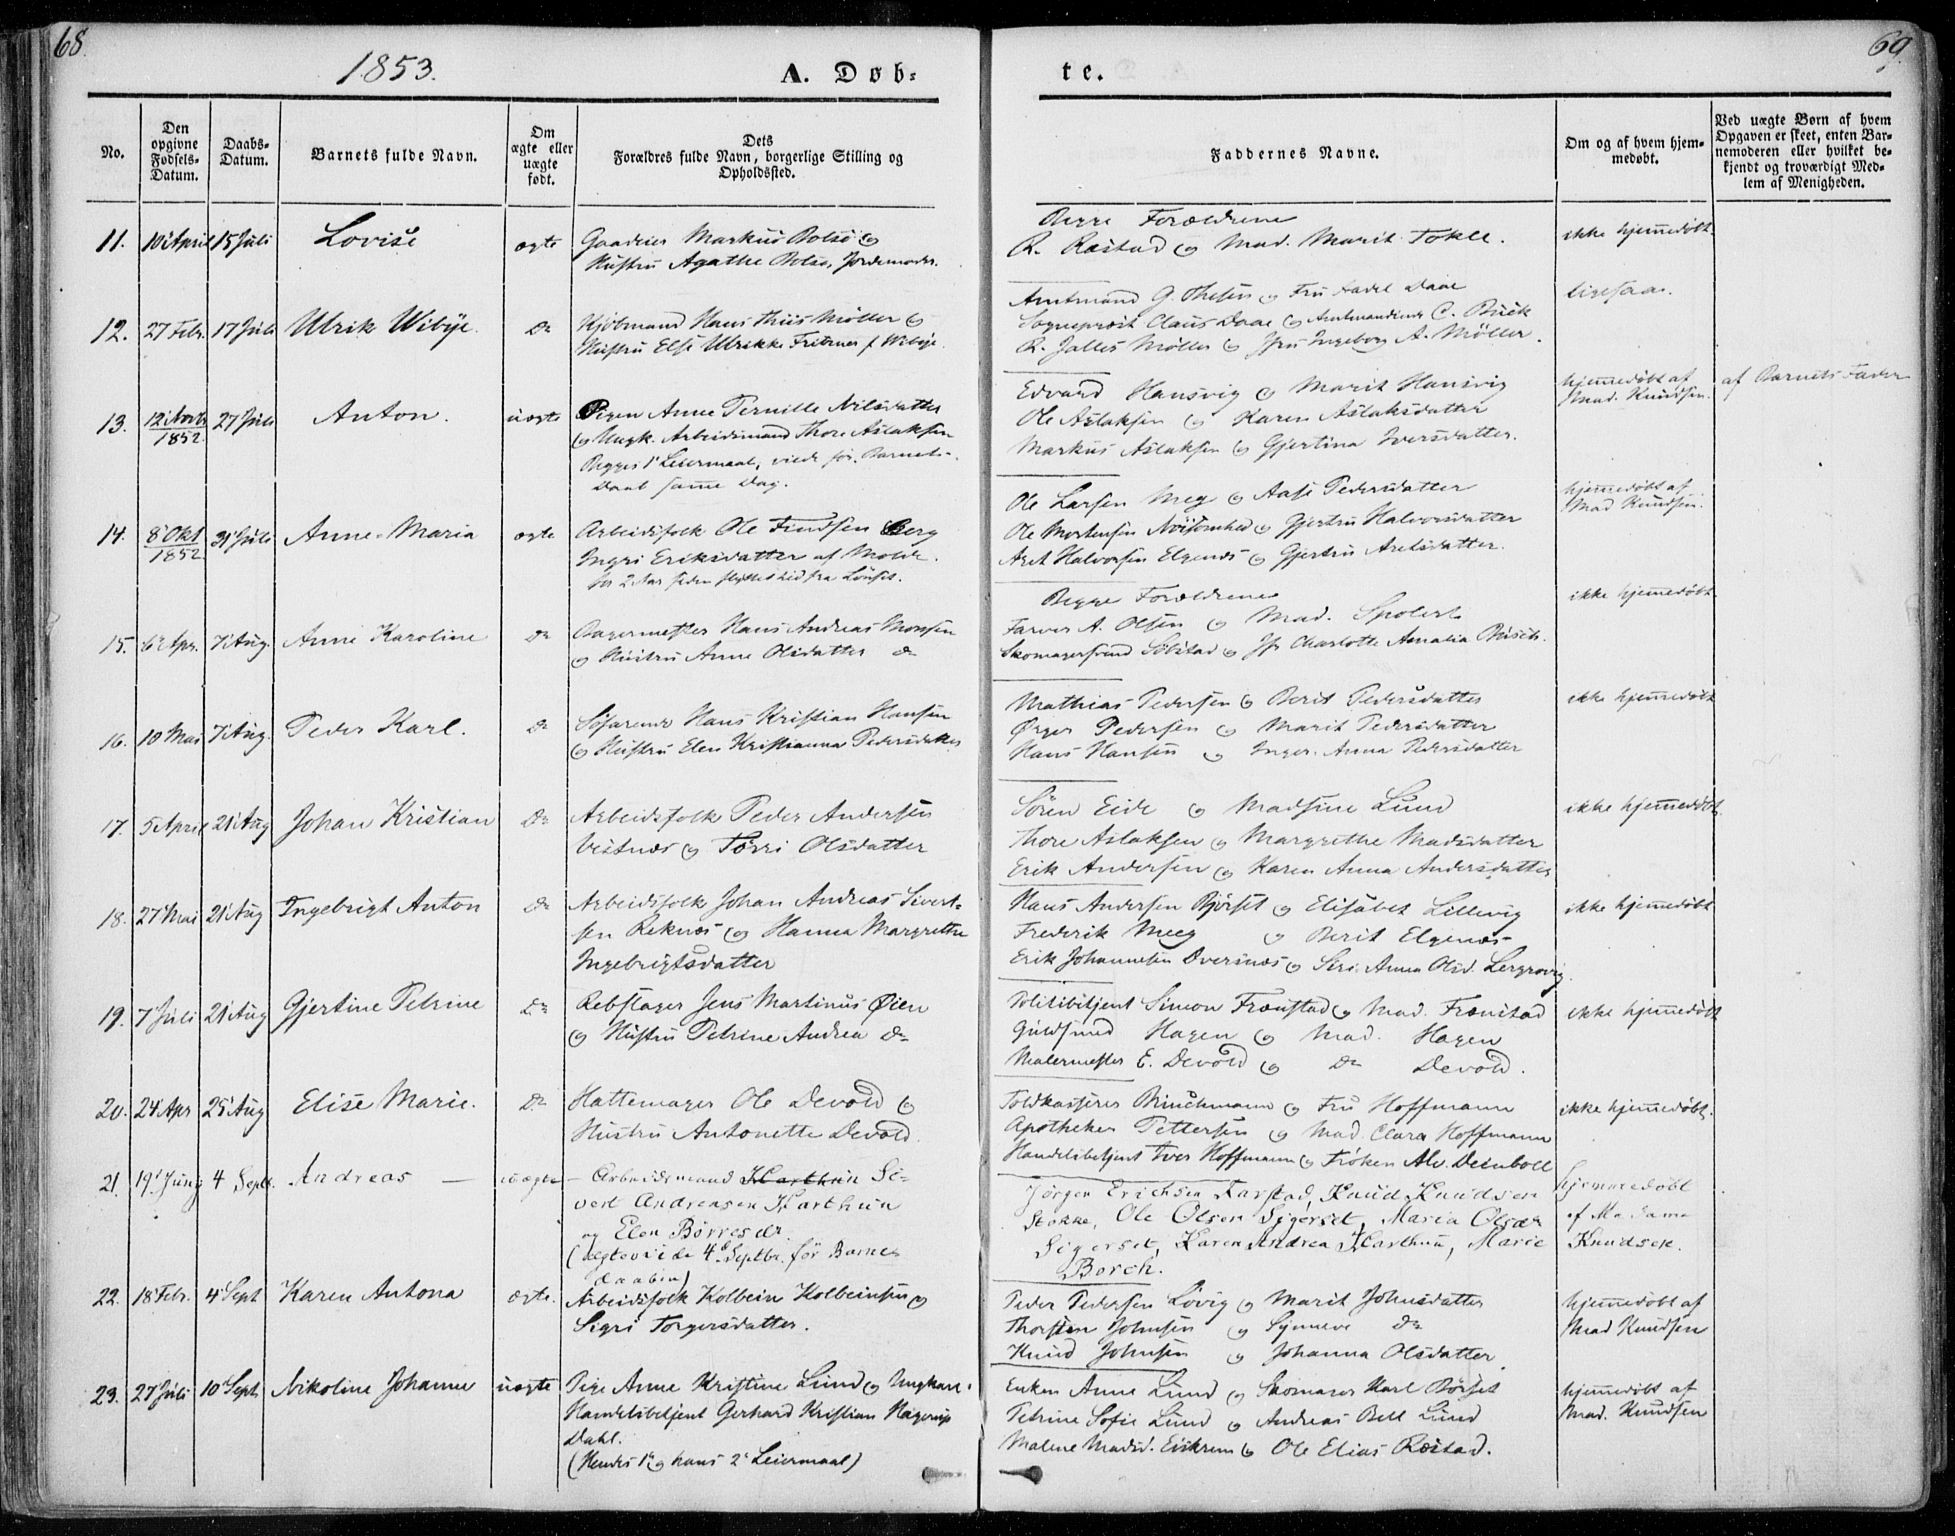 68.
1853.
A. Døb-
No.
Den opgivne Fødsels-Datum.
Daabs-Datum.
Barnets fulde Navn.
Om ægte eller uægte født.
Dets Forældres fulde Navn, borgerlige Stilling og Opholdssted.
11. 10 April 15 Juli Lovise ægte Gaardeier Markus Bolsø og
Hustru Agathe Bolsø, Jordemoder.
12. 27 Febr. 17 Juli Ulrik Wibye. Do Kjøbmand Hans Thiis Møller og
Hustru Else Ulrikke Fritzner f. Wibye.
13. 12 Novbr 1852. 27 Juli Anton. uægte Pigen Anne Pernille Nilsdatter
og Ungk. Arbeidsmand Thore Aslaksen
Begges 1ste Leiermaal, viede før Barnets
Daab samme Dag.
14. 8 Okt 1852 31 Juli Anne Maria ægte Arbeidsfolk Ole Findsen Berg
Ingri Eriksdatter af Molde.
for 2 Aar siden flyttet hid fra
15. 6 Apr. 7 Aug. Anne Karoline Do Bagermester Hans Andreas Monsen
og Hustru Anne Olsdatter Do
16. 10 Mai 7 Aug. Peder Karl. Do Søfarende Hans Kristian Hansen
og Hustru Elen Kristianna Pedersdatter
17. 5 April 21 Aug Johan Kristian Do Arbeidsfolk Peder Andersen
Vestnæs og Torri Olsdatter
18. 27 Mai 21 Aug Ingebrigt Anton Do Arbeidsfolk Johan Andreas Sivert-
sen Reknæs og Hanna Margrethe
Ingebrigtsdatter
19. 7 Juli 21 Aug Gjertine Petrine Do Rebslager Jens Martinus Øien
og Hustru Petrine Andrea Do
20. 24 Apr 25 Aug Elise Marie. Do Hattemager Ole Devold og
Hustru Antonette Devold.
21. 19 Juny 4 Sept. Andreas — uægte — Arbeidsmand Karthun Si-
vert Andreasen Karthun
og Elen Børresdr.
(Ægteviede 4de Septbr. før Barne-
daaben)
22. 18 Febr. 4 Sept Karen Antona ægte. Arbeidsfolk Kolbein Kolbeinsen og
Sigri Torgersdatter.
23. 27 Juli 10 Sept. Nikoline Johanne uægte Pige Anne Kristine Lund og Ungkarl
Handelsbetjent Gerhard Kristian Hagerup
Dahl.
(Hendes 1ste og hans 2det Leiermaal)
69.
te.
Faddernes Navne.
Om og af hvem hjem-medøbt.
Ved uægte Børn af hvem Opgaven er skeet, enten Bar-nemoderen eller hvilket be-kjendt og troværdigt Med-lem af Menigheden.
Begge Forældrene
R. Røstad og Mad. Marit Tokle. ikke hjemmedøbt.
Amtmand G. Thesen og Fru Daae ligesaa.
Sognepræst Claus Daae og Amtmandinde C. Buck
R. Jalles Møller og Jfru Ingeborg A. Møller.
Edvard Hansvig og Marit Hansvig hjemmedøbt af Mad. Knudsen. af Barnets Fader
Ole Aslaksen og Karen Aslaksdatter
Markus Aslaksen og Gjertina Iversdatter.
Ole Larsen Meg og Aase Pedersdatter hjemmedøbt af Mad Knudsen.
Ole Mortensen Nøisomhed og Gjertru Halvorsdatter
Aret Halvorsen Elgenæs og Gjertru Aretsdatter.
Begge Forældrene ikke hjemmedøbt
Farver A. Olsen og Mad. Spolert
Skomagersvend Søbstad og Jfr Charlotte Amalia Busch.
Mathias Pedersen og Berit Pedersdatter ikke hjemmedøbt
Ørger Pedersen og Marit Pedersdatter
Hans Hansen og Inger Anna Pedersdatter
Søren Eide og Madsine Lund ikke hjemmedøbt.
Thore Aslaksen og Margrethe Madsdatter
Erik Andersen og Karen Anna Andersdatter
Hans Andersen Bjørset og Elisabet Lillevig ikke hjemmedøbt
Frederik Meeg og Berit Elgenæs
Erik Johannesen Oversnæs og Siri Anna Olsd. Lergrovig.
Politibetjent Simon Frænstad og Mad. Frænstad ikke hjemmedøbt
Guldsmed Hagen og Mad. Hagen
Malermester E. Devold og Do Devold.
Toldkasserer Minchmann og Fru Hoffmann ikke hjemmedøbt.
Apotheker Pettersen og Mad. Clara Hoffmann
Handelsbetjent Iver Hoffmann og Frøken Alv. Deinboll
Jørgen Erichsen Farstad, Knud Knudsen hjemmedøbt
Stokke, Ole Olsen Sigerset, Maria Olsdr af Madame
Sigerset, Karen Andrea Karthun, Marie Knudsen.
Borch.
Peder Pedersen Løvig og Marit Johnsdatter hjemmedøbt af
Thorsten Johnsen og Synneve Do Mad Knudsen
Knud Johnsen og Johanna Olsdatter
Enken Anne Lund og Skomager Karl Børset hjemmedøbt af
Petrine Sofie Lund og Andreas Bell Lund Mad. Knudsen
Malene Madsd. Eikrem og Ole Elias Røstad.